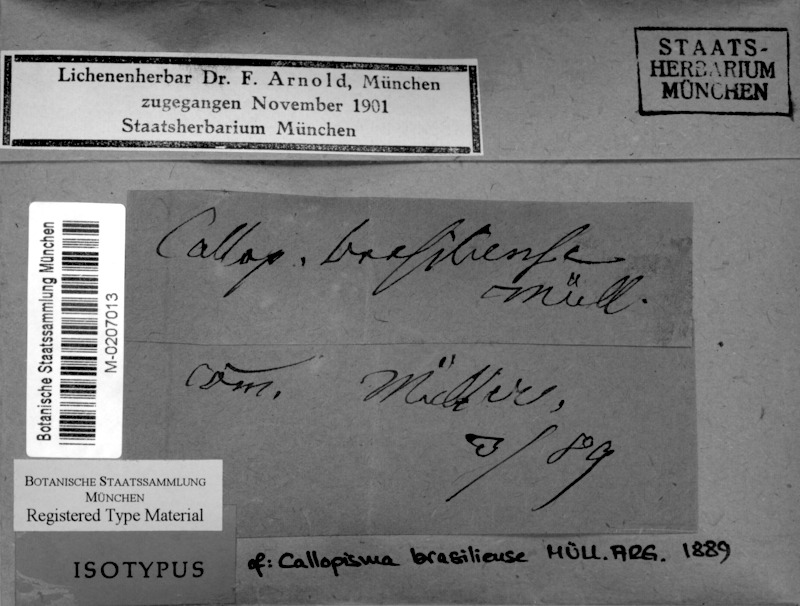 STAATS-
HERBARIUM
MÜNCHEN
Lichenenherbar Dr. F. Arnold, München
zugegangen November 1901
Staatsherbarium München
Botanische Staatssammlung München
M-0207013
Callop. brasiliense
Müll.
com. Müller,
/89
BOTANISCHE STAATSSAMMLUNG
MÜNCHEN
Registered Type Material
ISOTYPUS
of: Callopisma brasiliense MÜLL. ARG. 1889